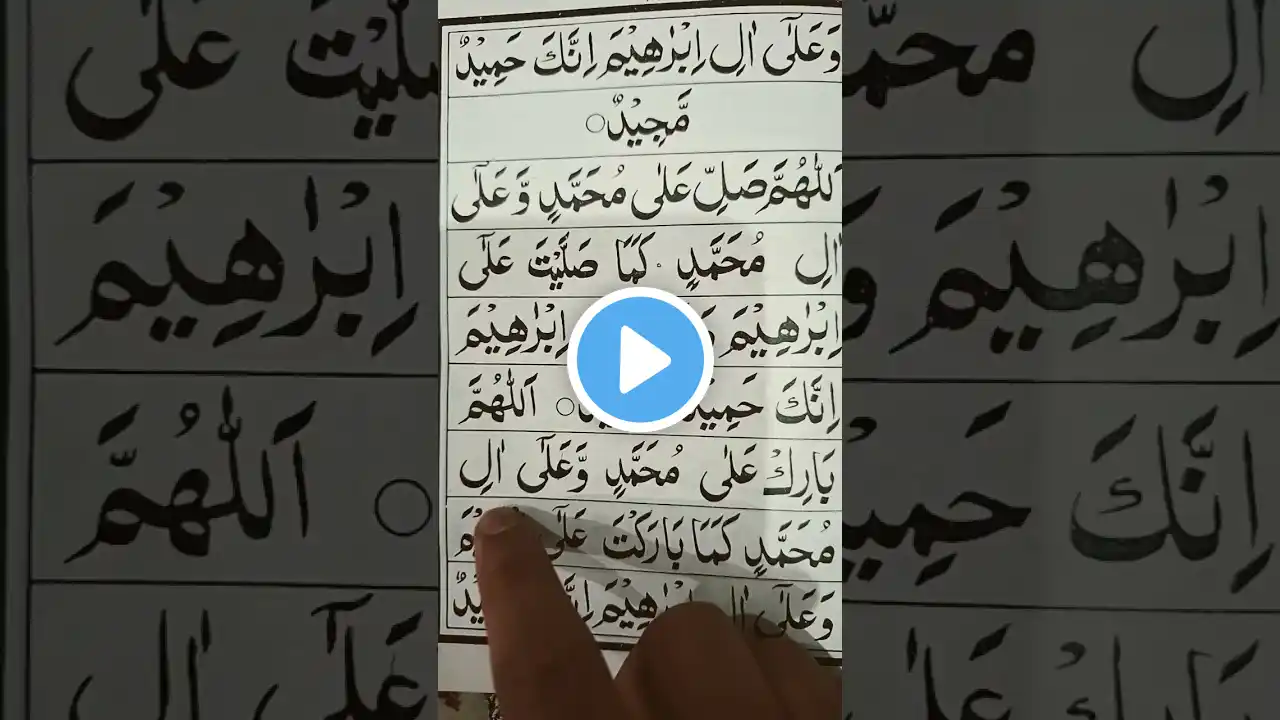 وَعَلٰٓى اٰلِ اِبْرٰهِيْمَ اِنَّكَ حَمِيْدٌ
مَّجِيْدٌ○
اَللّٰهُمَّ صَلِّ عَلٰى مُحَمَّدٍ وَّعَلٰٓى
اٰلِ مُحَمَّدٍ كَمَا صَلَّيْتَ عَلٰٓى
اِبْرٰهِيْمَ اِبْرٰهِيْمَ
اِنَّكَ حَمِيْدٌ ○ اَللّٰهُمَّ
بَارِكْ عَلٰى مُحَمَّدٍ وَّعَلٰٓى اٰلِ
مُحَمَّدٍ كَمَا بَارَكْتَ عَلٰٓى
وَعَلٰٓى اٰلِ اِبْرٰهِيْمَ